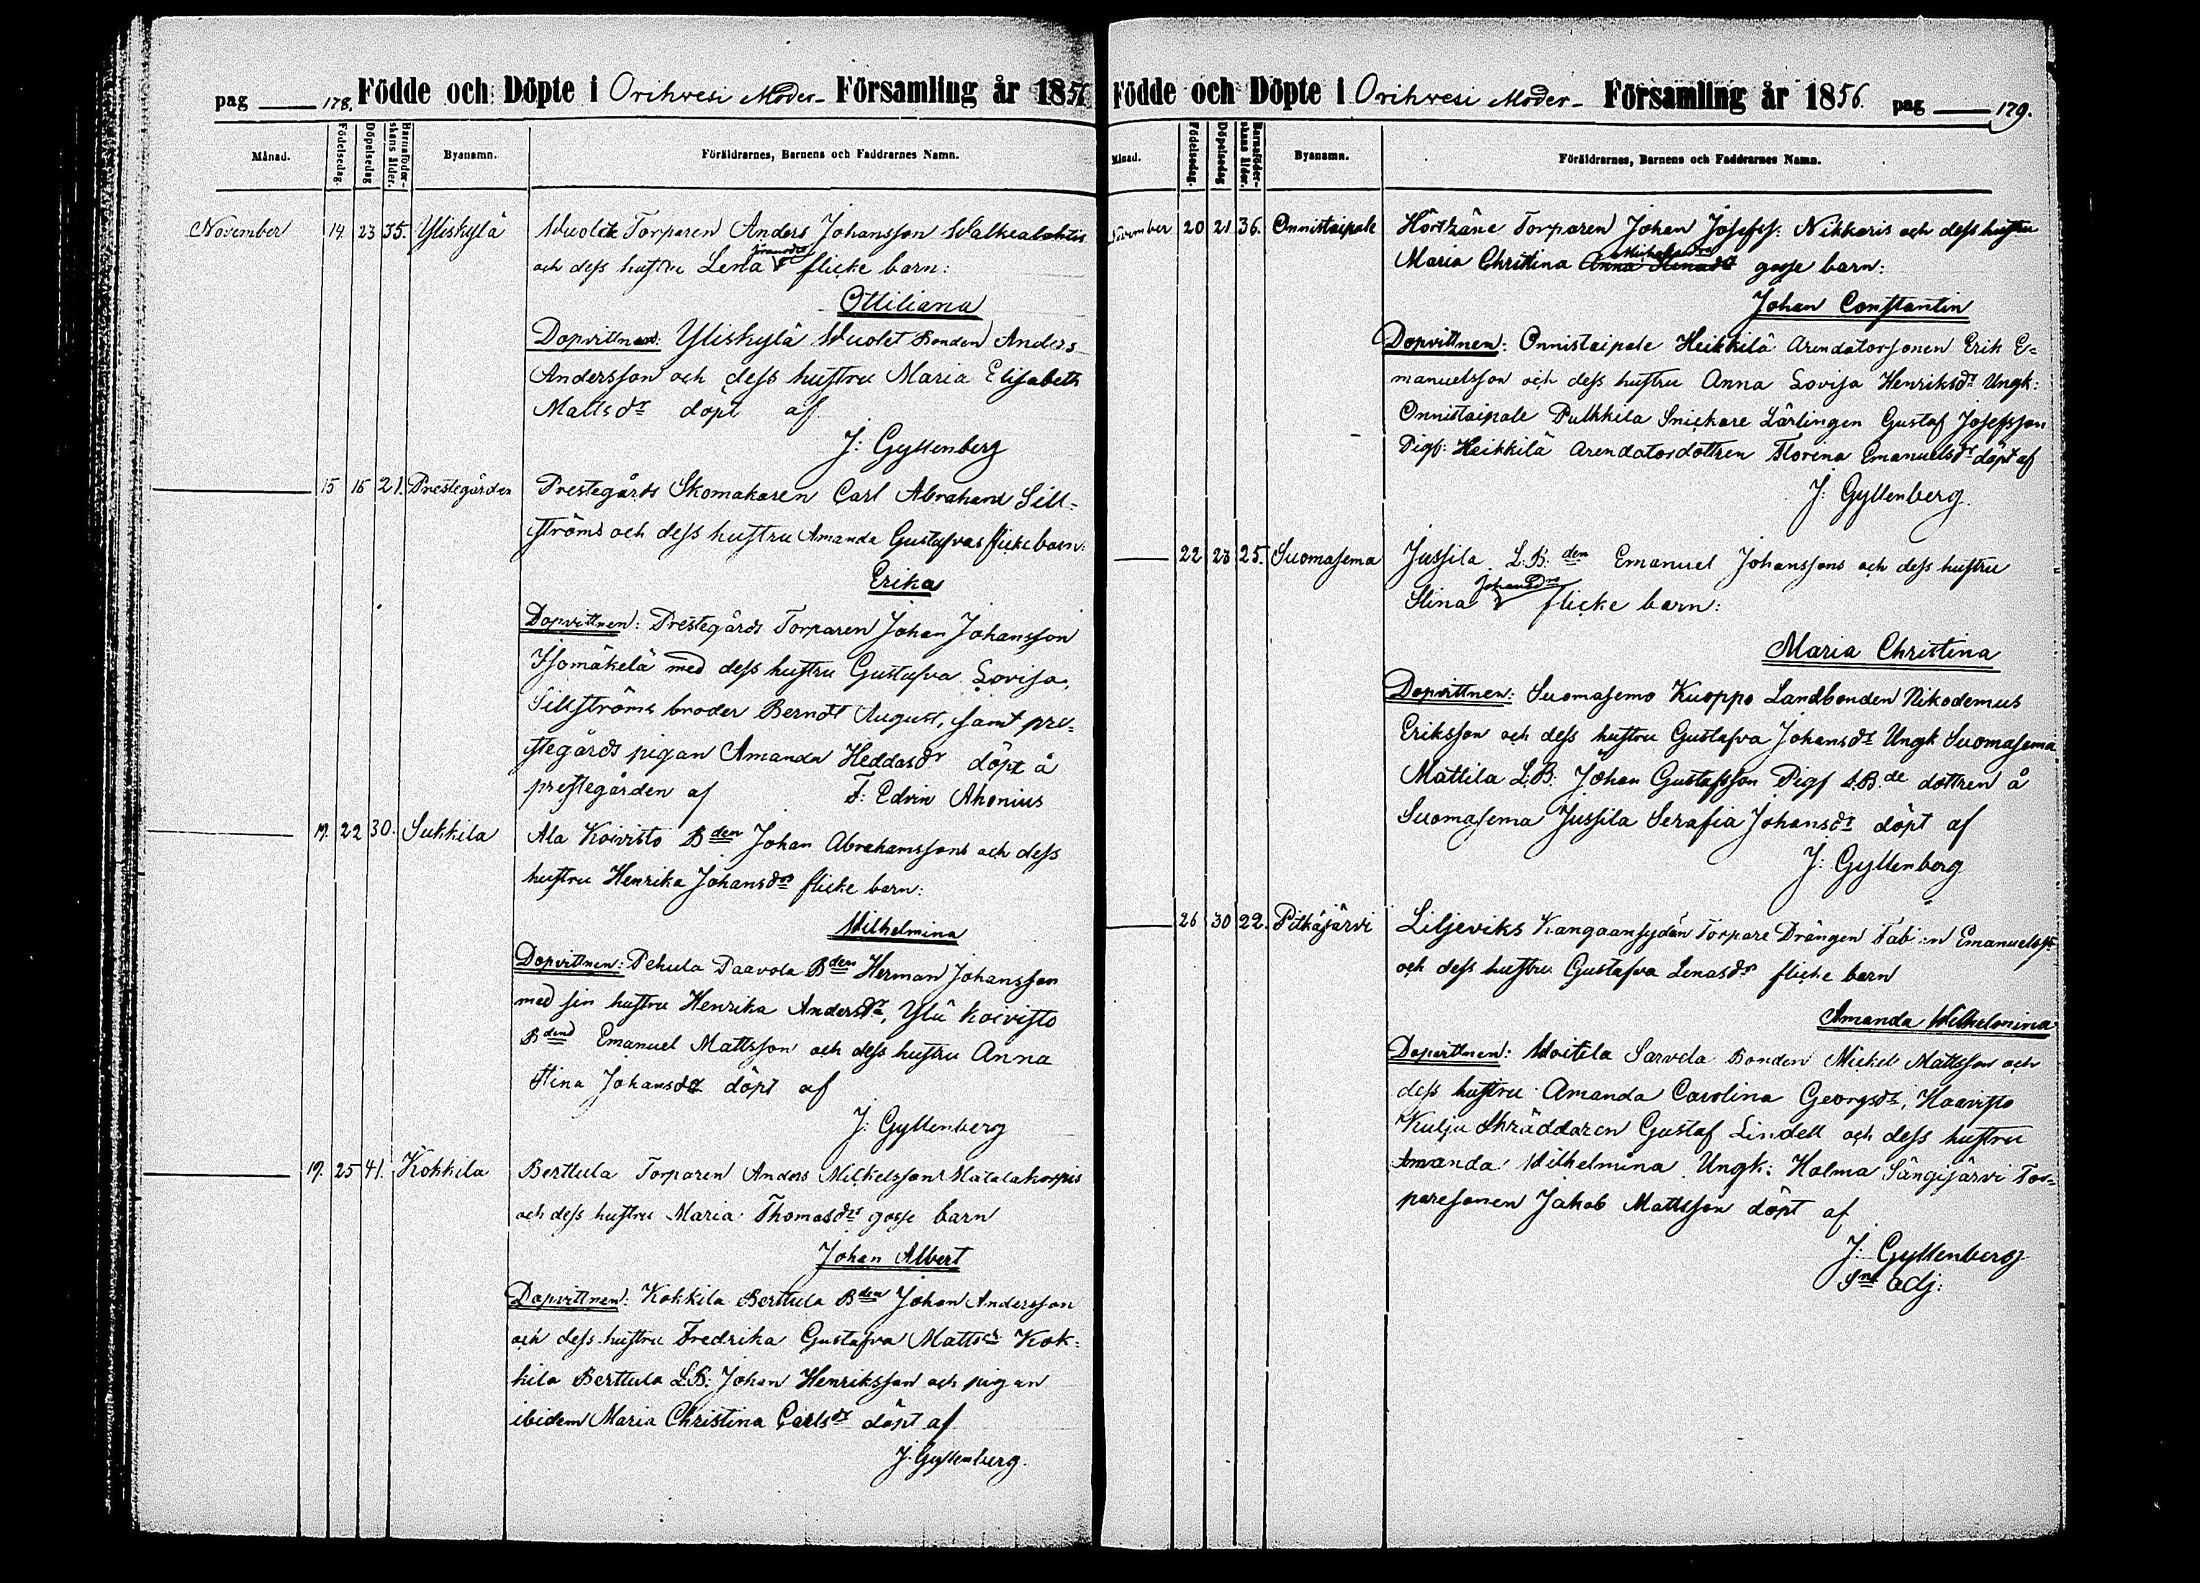 pag 178. Födde och Döpte i Orihvesi Moder- Församling år 1856
Månad. Födelsedag. Döpelsedag Barnaföderskans ålder. Byanamn. Föräldrarnes, Barnens och Faddrarnes Namn.
November 14 23 35. Yliskylä Torparen Anders Johansson
och dess hustru Lena flicke barn:
Ottiliana
Dopvittnen: Yliskylä Wuolet Bonden Anders
Andersson och dess hustru Maria Elisabeth
Mattsdr döpt af
J: Gyllenberg
15 16 21. Prestegården Prestegårds Skomakaren Carl Abraham Sill-
ströms och dess hustru Amanda Gustafvas flicke barn:
Erika
Dopvittnen: Prestegårds Torparen Johan Johansson
Isomäkelä med dess hustru Gustafva Lovisa,
Sillströms broder Berndt August, samt pre-
stegårds pigan Amanda Heddasdr döpt å
prestegården af F: Edvin Ahonius
19. 22 30. Sukkila Ala Koivisto Bden Johan Abrahamssons och dess
hustru Henrika Johansdrs flicke barn:
Wilhelmina
Dopvittnen: Pehula Paavola Bden Herman Johansson
med sin hustru Henrika Andersdr, Ylä Koivisto
Bden Emanuel Mattsson och dess hustru Anna
Stina Johansdr döpt af
J: Gyllenberg
19. 25 41. Kokkila Berttula Torparen Anders Mikkelssons Matalakorpis
och dess hustru Maria Thomasdrs gosse barn
Johan Albert
Dopvittnen: Kokkila Berttula Bden Johan Andersson
och dess hustru Fredrika Gustafva Mattsdr Kok-
kila Berttula LB: Johan Henriksson och pigan
ibidem Maria Christina Carlsdr döpt af
J: Gyllenberg.
Födde och Döpte i Orihvesi Moder- Församling år 1856. pag 179.
Månad. Födelsedag. Döpelsedag Barnaföderskans ålder. Byanamn. Föräldrarnes, Barnens och Faddrarnes Namn.
November 20 21 36. Onnistaipale Torparen Johan Josefss: Nikkaris och dess hustru
Maria Christina gosse barn:
Johan Constantin
Dopvittnen: Onnistaipale Heikkilä Arendatorsonen Erik E-
manuelsson och dess hustru Anna Lovisa Henriksdr Ungk:
Onnistaipale Pulkkila Snickare Lärlingen Gustaf Josefsson
Pigf: Heikkilä Arendatordottren Florena Emanuelsdr döpt af
J: Gyllenberg.
22 23 25. Suomasema Jussila L:B:den Emanuel Johanssons och dess hustru
Stina Johansdrs flicke barn:
Maria Christina
Dopvittnen: Suomasema Kuoppa Landbonden Nikodemus
Eriksson och dess hustru Gustafva Johansdr Ungk Suomasema
Mattila L:B: Johan Gustafsson Pigf L:B:de dottren å
Suomasema Jussila Serafia Johansdr döpt af
J: Gyllenberg
26 30 22. Pitkäjärvi Liljeviks Kangaansydän Torpare Drängen Fabian Emanuelss:
och dess hustru Gustafva Lenasdr flicke barn
Amanda Wilhelmina
Dopvittnen: Woitila Sarvela Bonden Mickel Mattsson och
dess hustru Amanda Carolina Georgsdr, Haavisto
Kulju Skräddaren Gustaf Lindell och dess hustru
Amanda Wilhelmina Ungk: Holma Sängijärvi Tor-
paresonen Jakob Mattsson döpt af
J: Gyllenberg
adj: